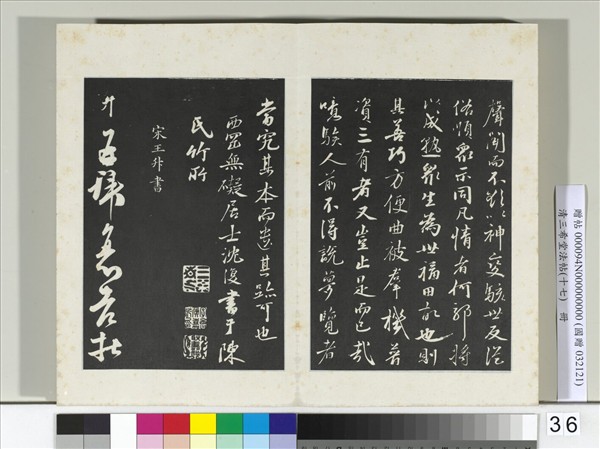 聲聞而不欲以神變駭世反從
俗順眾示同凡情者何耶將
以成熟眾生為世福田故也則
其善巧方便曲被羣機菩
資三有者又豈止是而已哉
嘻癡人前不得說夢覽者
當究其本而遺其跡可也
西罡無礙居士沈復書于陳
氏竹所
宋王升書
升
贈帖 000094N000000000 (國贈 032121)
清三希堂法帖(十七) 冊
36